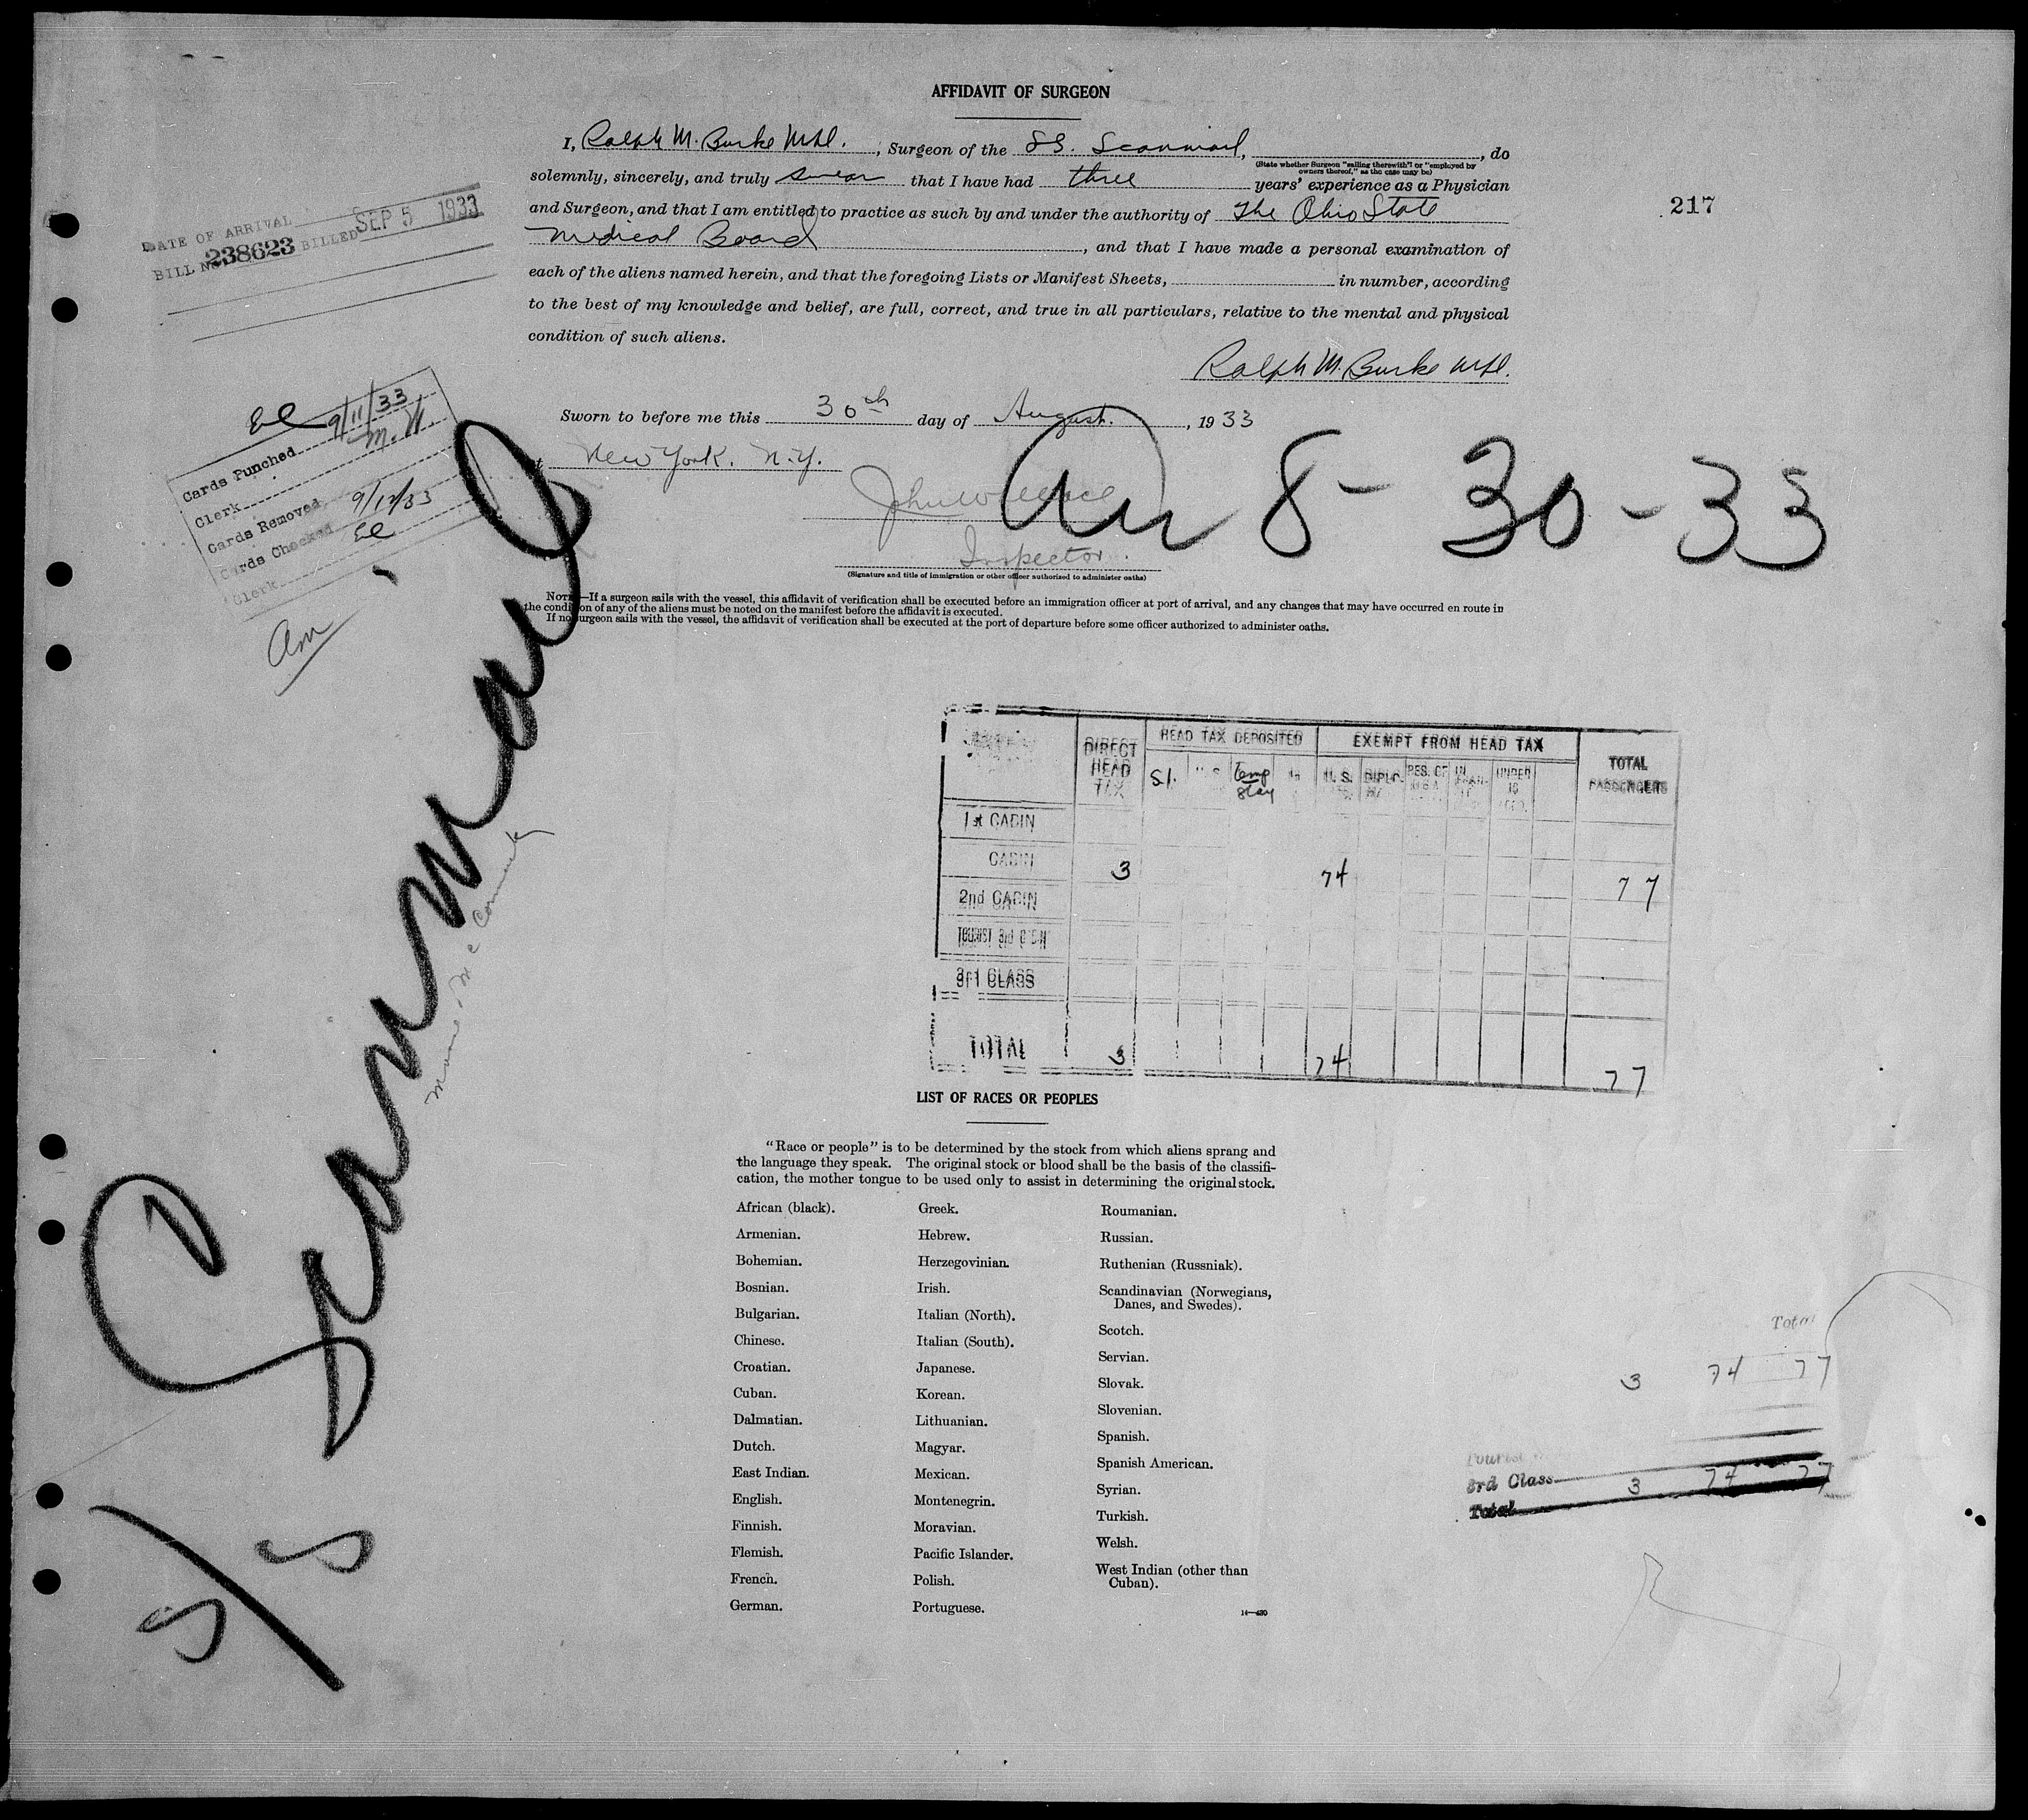 AFFIDAVIT OF SURGEON
I, Ralph M. Burke M.D., Surgeon of the SS. Scanmail, , do
(State whether Surgeon "sailing therewith" or "employed by
owners thereof," as the case may be)
solemnly, sincerely, and truly swear that I have had three years' experience as a Physician
and Surgeon, and that I am entitled to practice as such by and under the authority of The Ohio State
Medical Board, and that I have made a personal examination of
each of the aliens named herein, and that the foregoing Lists or Manifest Sheets, in number, according
to the best of my knowledge and belief, are full, correct, and true in all particulars, relative to the mental and physical
condition of such aliens.
Ralph M. Burke M.D.
Sworn to before me this 30th day of August, 1933
at New York. N.Y.
John Wallace
Inspector.
(Signature and title of immigration or other officer authorized to administer oaths)
NOTE.—If a surgeon sails with the vessel, this affidavit of verification shall be executed before an immigration officer at port of arrival, and any changes that may have occurred en route in
the condition of any of the aliens must be noted on the manifest before the affidavit is executed.
If no surgeon sails with the vessel, the affidavit of verification shall be executed at the port of departure before some officer authorized to administer oaths.
217
DATE OF ARRIVAL
BILL No. 238623 BILLED SEP 5 1933
El 9/11/33
Cards Punched
Clerk M. W.
Cards Removed
Cards Checked 9/12/33
Clerk El
am
8-30-33
S/S Scanmail
DIRECT HEAD TAX
HEAD TAX DEPOSITED
EXEMPT FROM HEAD TAX
TOTAL PASSENGERS
S.I. Temp Stay U.S. DIPLO. RES. OF IN TRAN. UNDER 16
1st CABIN
CABIN 3 74 77
2nd CABIN
TOURIST 3rd CABIN
3rd CLASS
TOTAL 3 74 77
LIST OF RACES OR PEOPLES
"Race or people" is to be determined by the stock from which aliens sprang and
the language they speak. The original stock or blood shall be the basis of the classifi-
cation, the mother tongue to be used only to assist in determining the original stock.
African (black).
Armenian.
Bohemian.
Bosnian.
Bulgarian.
Chinese.
Croatian.
Cuban.
Dalmatian.
Dutch.
East Indian.
English.
Finnish.
Flemish.
French.
German.
Greek.
Hebrew.
Herzegovinian.
Irish.
Italian (North).
Italian (South).
Japanese.
Korean.
Lithuanian.
Magyar.
Mexican.
Montenegrin.
Moravian.
Pacific Islander.
Polish.
Portuguese.
Roumanian.
Russian.
Ruthenian (Russniak).
Scandinavian (Norwegians,
Danes, and Swedes).
Scotch.
Servian.
Slovak.
Slovenian.
Spanish.
Spanish American.
Syrian.
Turkish.
Welsh.
West Indian (other than
Cuban).
14—430
Total
3 74 77
Tourist
3rd Class
Total 3 74 77